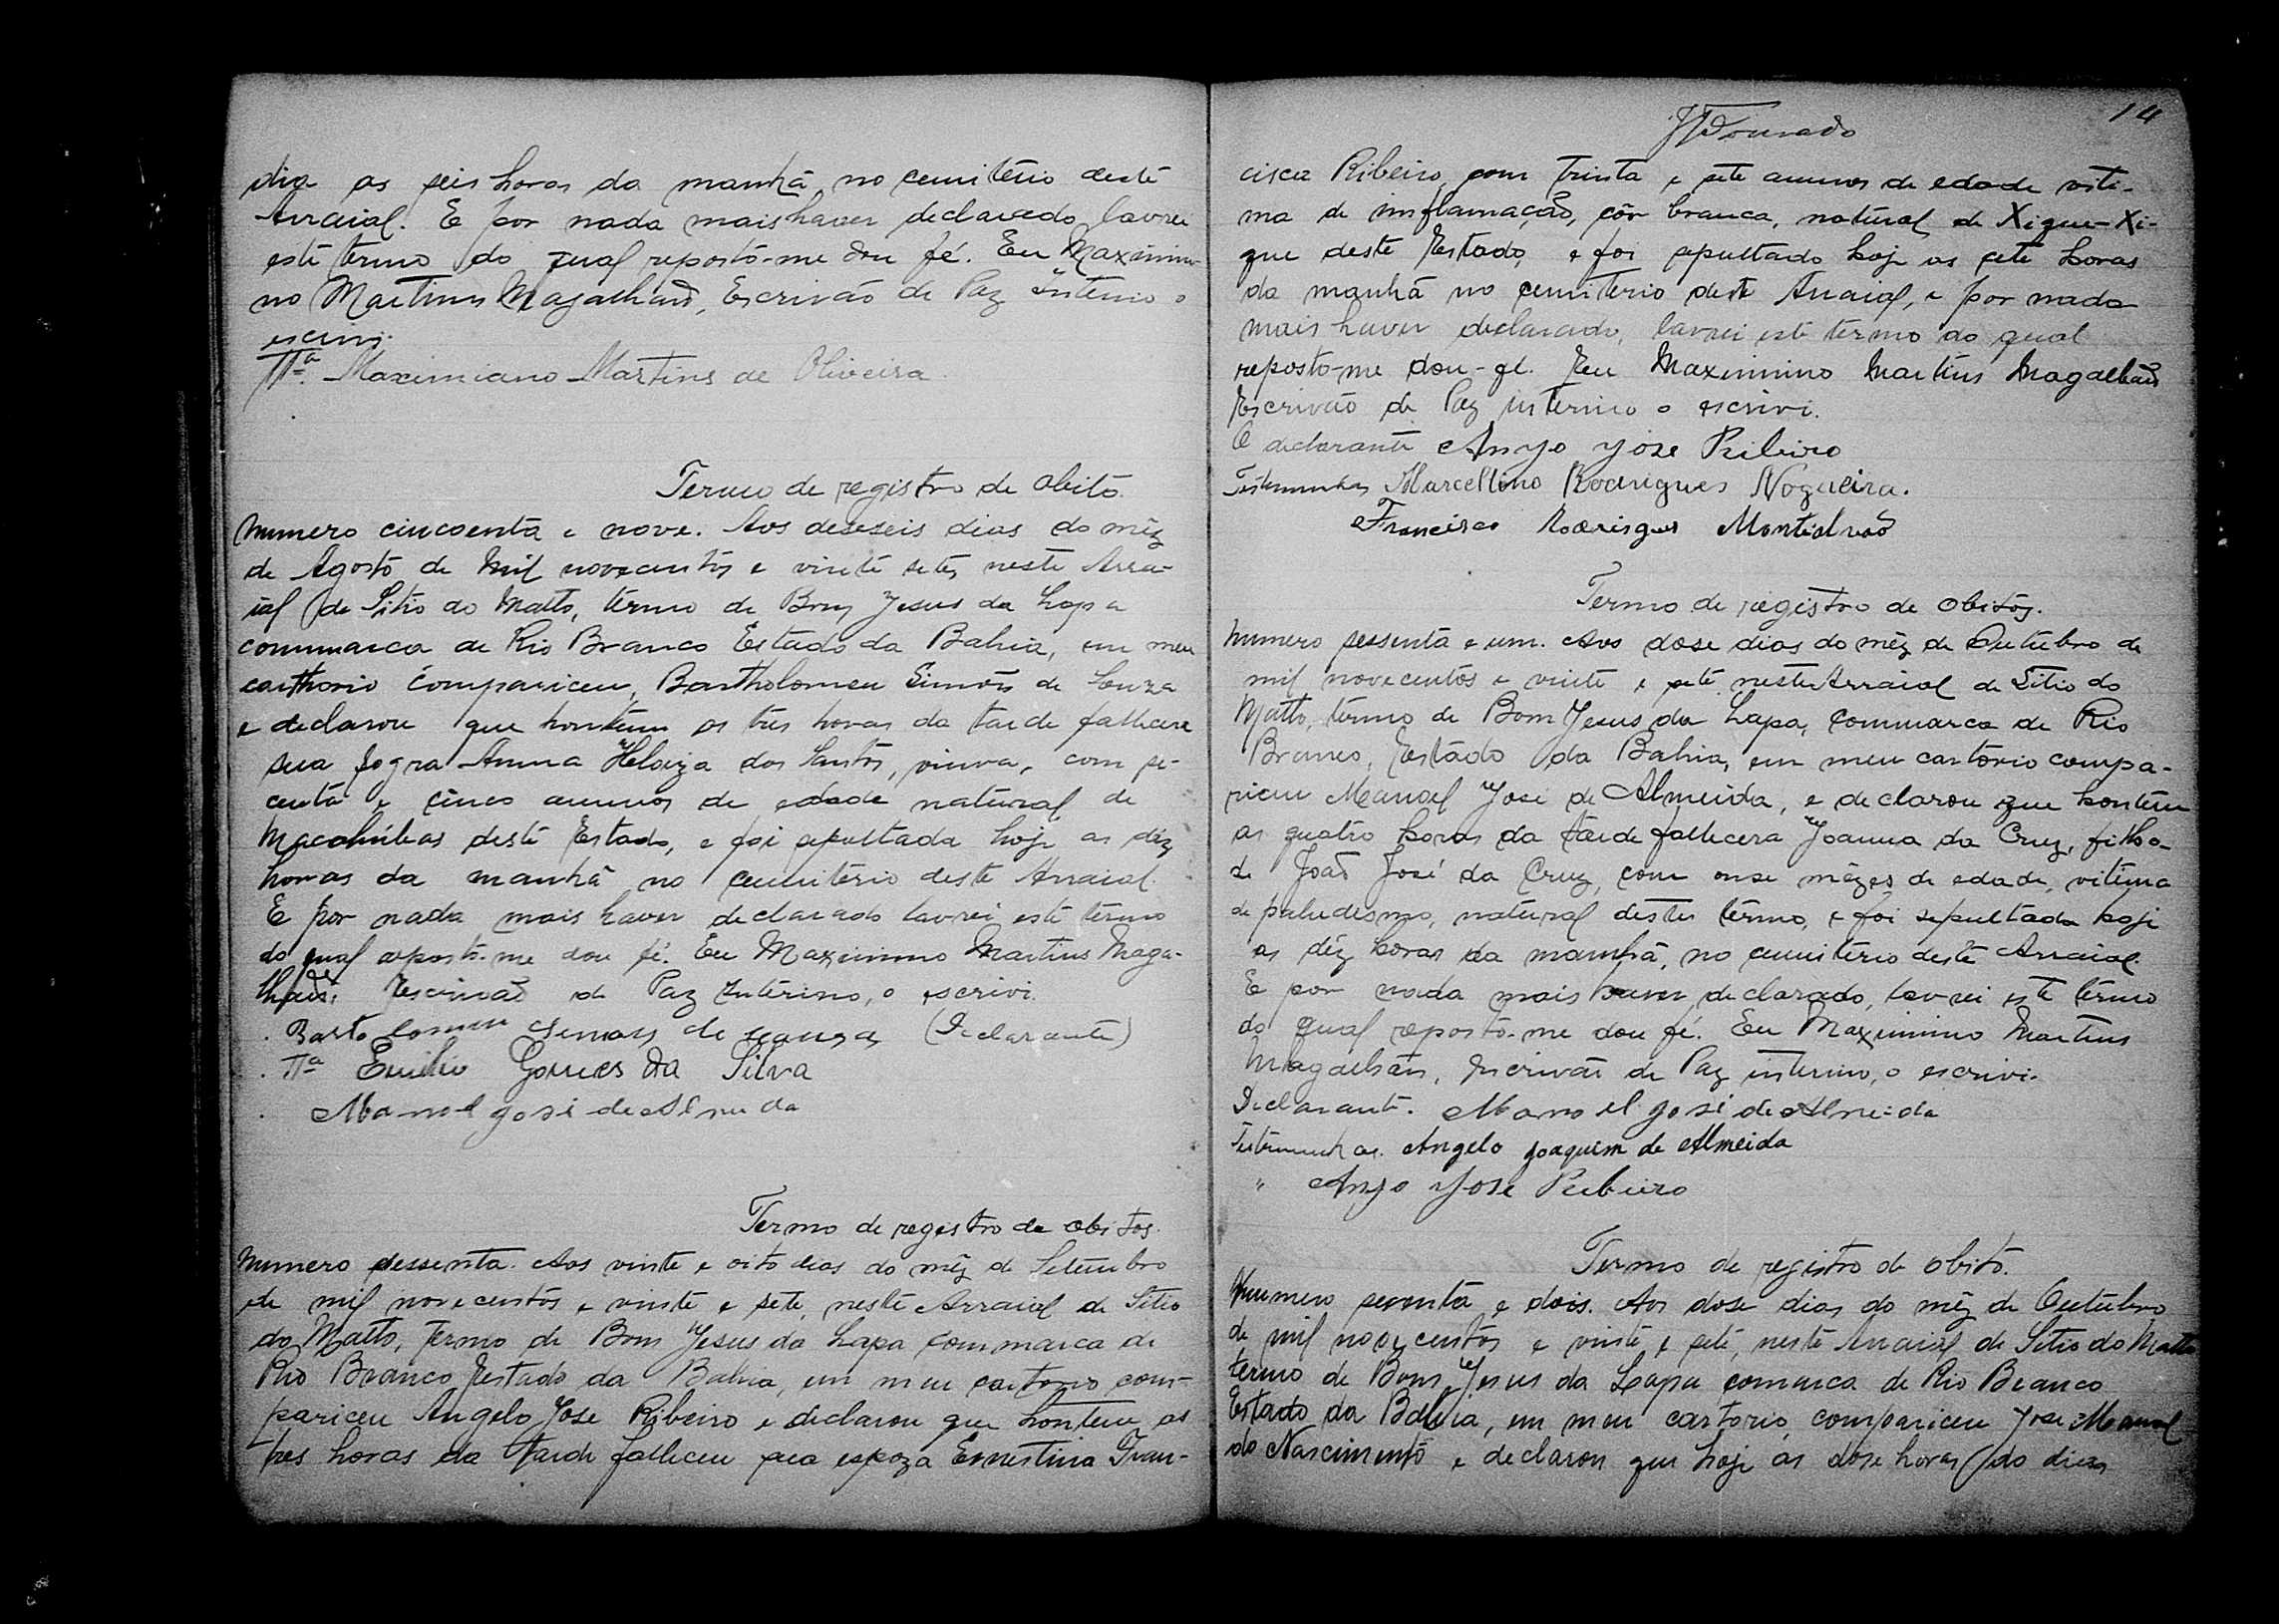 dia as seis horas da manhã, no cemitério deste
Arraial. E por nada mais haver declarado, lavrei
este termo do qual reposto-me dou fé. Eu Maximi-
no Martins Magalhães, Escrivão de Paz interino o
escrivi.
Ttª. Maximiano Martins de Oliveira.
Termo de registro de obito.
Numero cincoenta e nove. Aos deseseis dias do mêz
de Agosto de mil novecentos e vinte sete, neste Arra-
ial de Sitio do Matto, têrmo de Bom Jesus da Lapa
commarca de Rio Branco Estado da Bahia, em meu
carthorio compariceu, Bartholomeu Simões de Souza
e declarou que hontem as três horas da tarde fallecera
sua sogra Anna Heloiza dos Santos, viuva, com se-
centa e cinco annos de edade natural de
Macahúbas deste Estado, e foi sepultada hoje as déz
horas da manhã no cemitério deste Arraial.
E por nada mais haver declarado lavrei este têrmo
do qual reposto-me dou fé. Eu Maximino Martins Maga-
lhães, Escrivão de Paz Interino, o escrivi.
Bartolomeu Simoes de (Declarante)
Ttª Emilio Gomes da Silva
Manoel José de Almeida
Termo de registro de obitos.
Numero sessenta. Aos vinte e oito dias do mêz de Setembro
de mil novecentos e vinte e sete, neste Arraial de Sitio
do Matto, Termo de Bom Jesus da Lapa commarca de
Rio Branco Estado da Bahia, em meu cartorio com-
pariceu Angelo Jose Ribeiro e declarou que hontem as
tres horas da tarde falleceu sua espoza Ernestina Fran-
14
JJDourado
cisca Ribeiro, com trinta e sete annos de edade viti-
ma de imflamação, côr branca, natural de Xique-Xi-
que deste Estado, e foi sepultado hoje as sete horas
da manhã no cemiterio deste Arraial, e por nada
mais haver declarado, lavrei este termo do qual
reposto-me dou-fé. Eu Maximino Martins Magalhães
Escrivão de Paz interino o escrivi.
O declarante Anjo Jose Ribeiro
Testemunhas Marcellino Rodrigues Nogueira.
Francisco Rodrigues Montealvão
Termo de registro de obitos.
Numero sessenta e um. Aos dose dias do mêz de Outubro de
mil novecentos e vinte e sete neste Arraial de Sitio do
Matto, têrmo de Bom Jesus da Lapa, commarca de Rio
Branco, Estado da Bahia, em meu cartorio compa-
riceu Manoel José de Almeida, e declarou que hontem
as quatro horas da tarde fallecera Joanna da Cruz, filha
de João José da Cruz, com onse mêzes de edade, vitima
de paludismo, natural deste têrmo, e foi sepultada hoje
as déz horas da manhã, no cemitério deste Arraial.
E por nada mais haver declarado, lavrei este têrmo
do qual reposto-me dou fé. Eu Maximino Martins
Magalhães, Escrivão de Paz interino, o escrivi.
Declarante. Manoel José de Almeida
Testemunhas. Angelo Joaquim de Almeida
" Anjo Jose Ribeiro
Termo de registro de obito.
Numero sessenta e dois. Aos dose dias do mêz de Outubro
de mil novecentos e vinte e sete, neste Arraial de Sitio do Matto
termo de Bom Jesus da Lapa comarca de Rio Branco
Estado da Bahia, em meu cartorio, compariceu Jose Manoel
do Nascimento e declarou que hoje as dose horas do dia